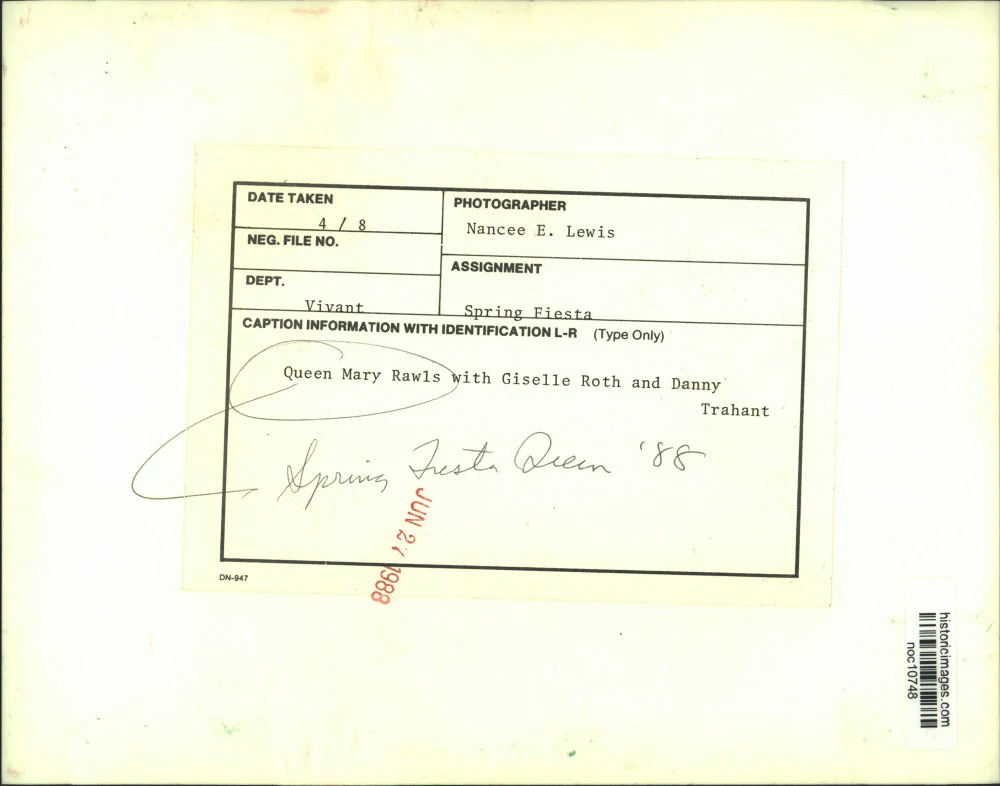 DATE TAKEN
4 / 8
PHOTOGRAPHER
Nancee E. Lewis
NEG. FILE NO.
DEPT.
Vivant
ASSIGNMENT
Spring Fiesta
CAPTION INFORMATION WITH IDENTIFICATION L-R (Type Only)
Queen Mary Rawls with Giselle Roth and Danny
Trahant
Spring Fiesta Queen '88
JUN 1988
DN-947
historicimages.com
noc10748